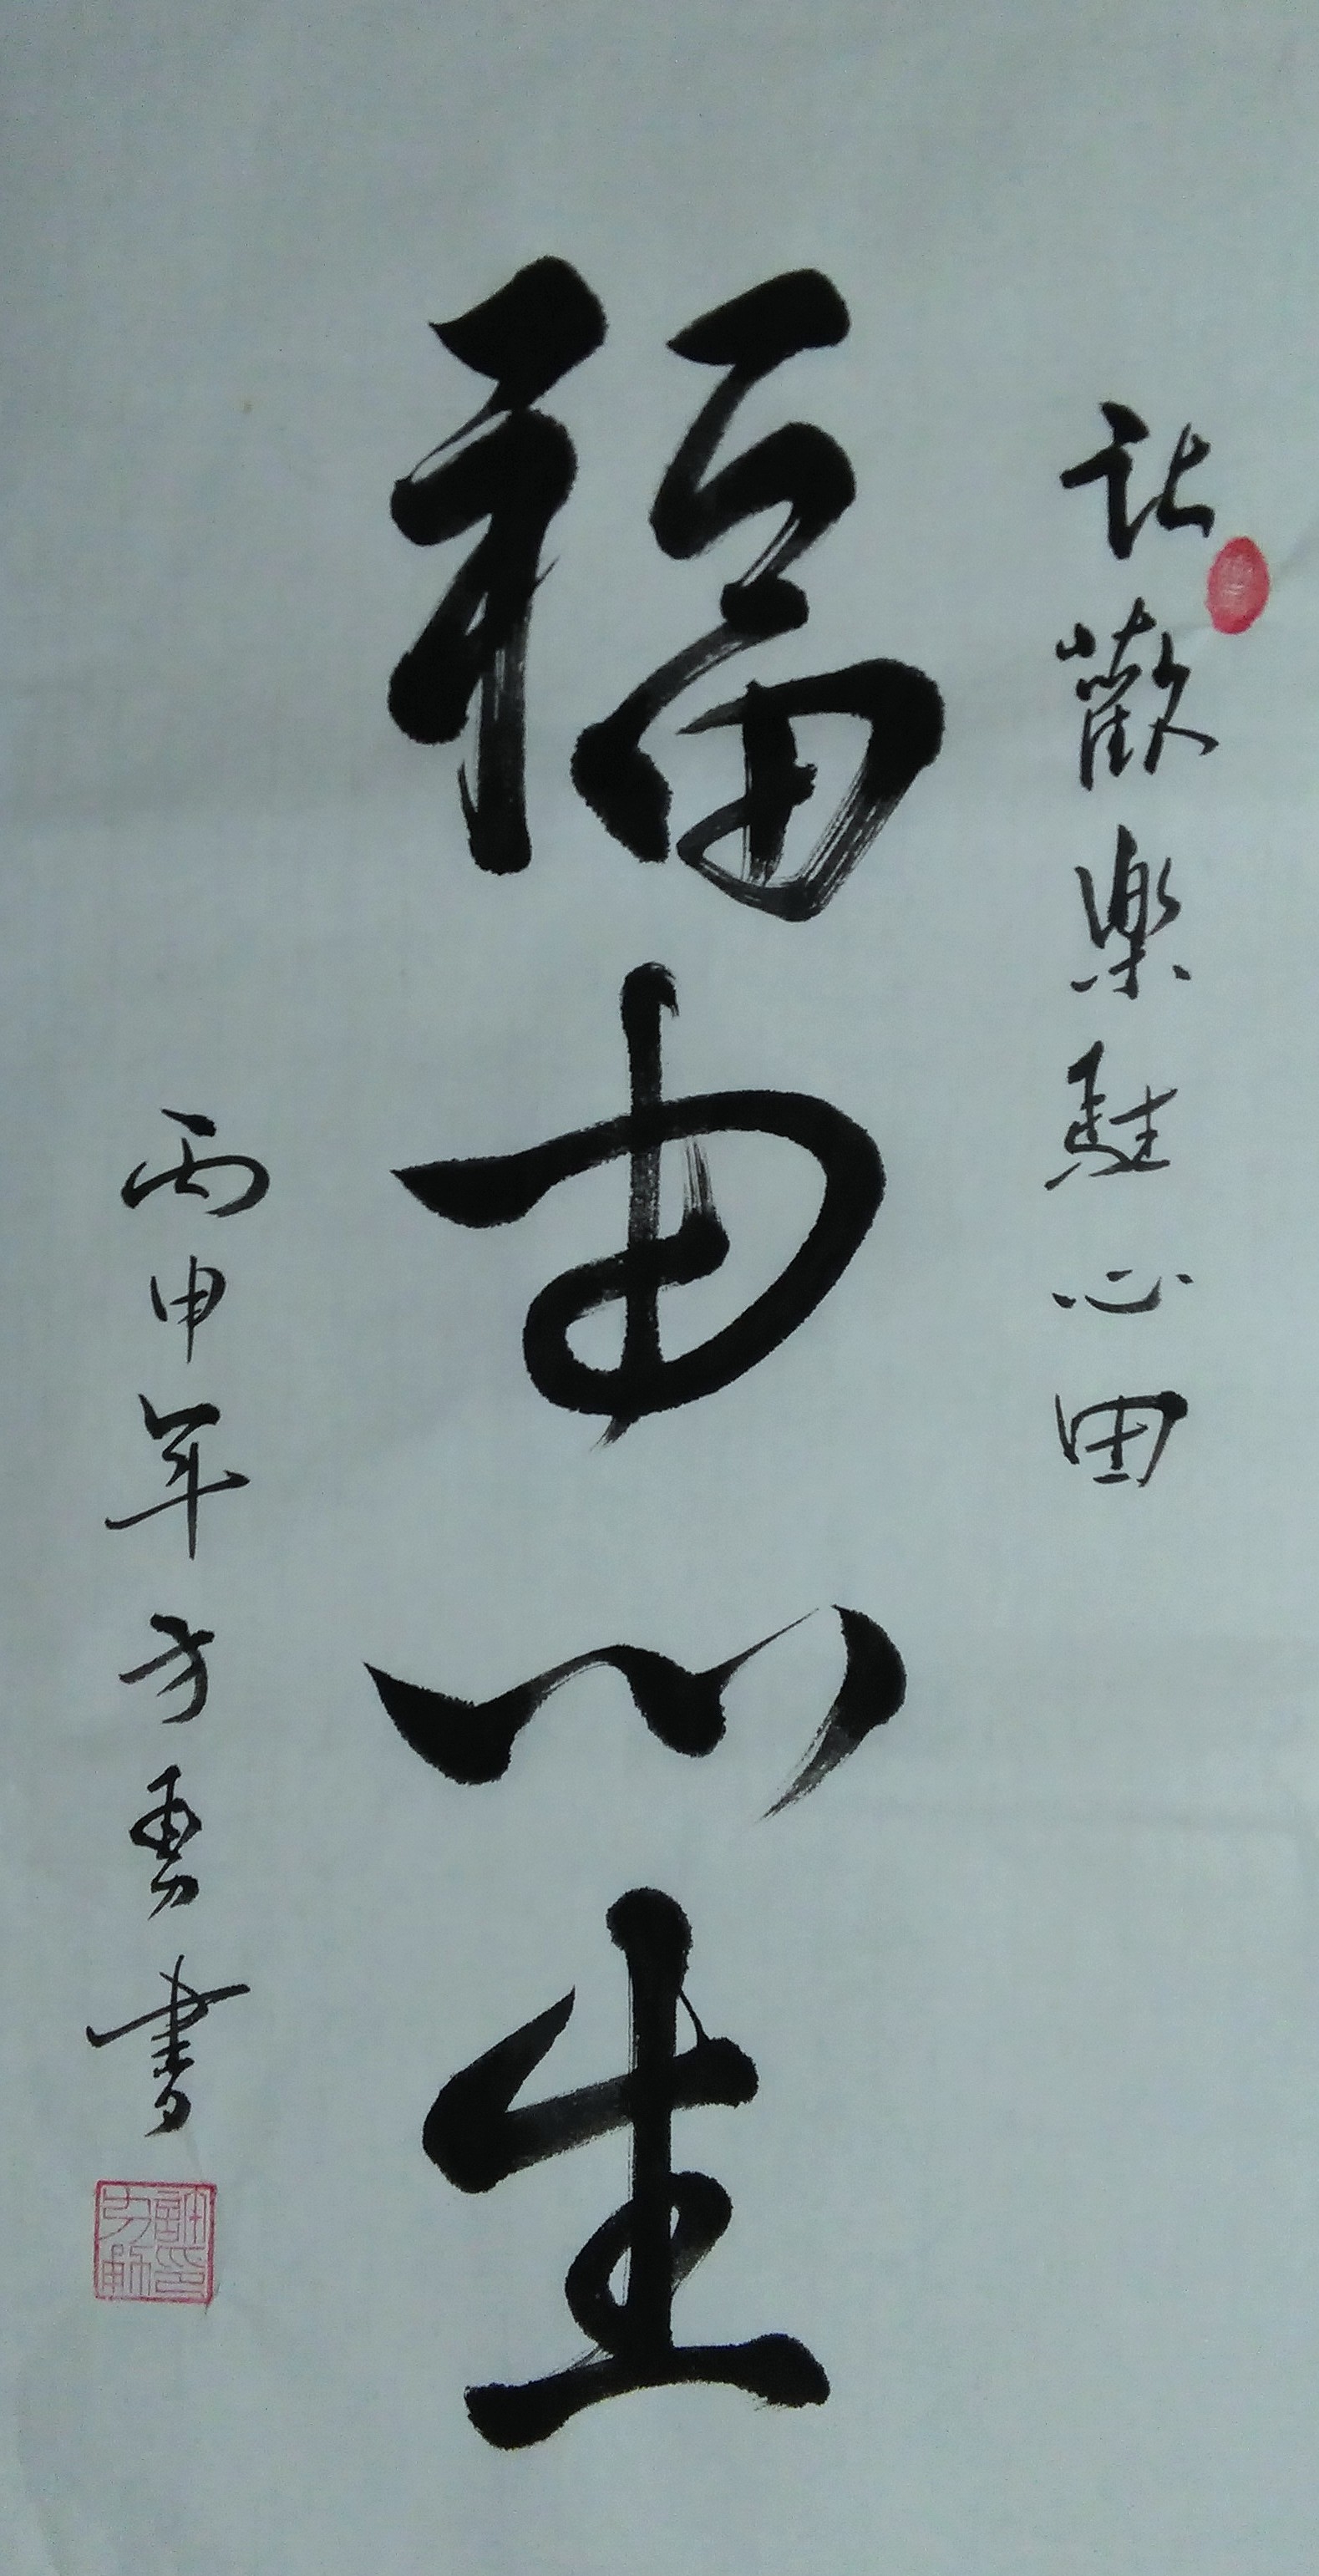 让歡樂駐心田
福由心生
丙申年方勇書